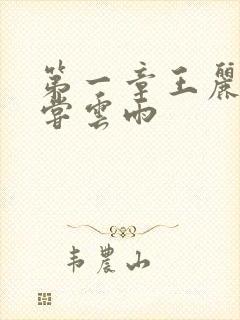 第一章王麗
嘗雲雨
韦農山